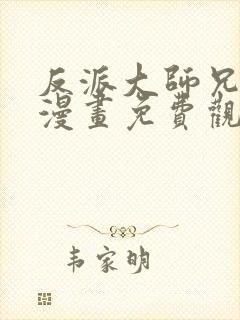 反派大師兄
漫畫免費觀
韦家明